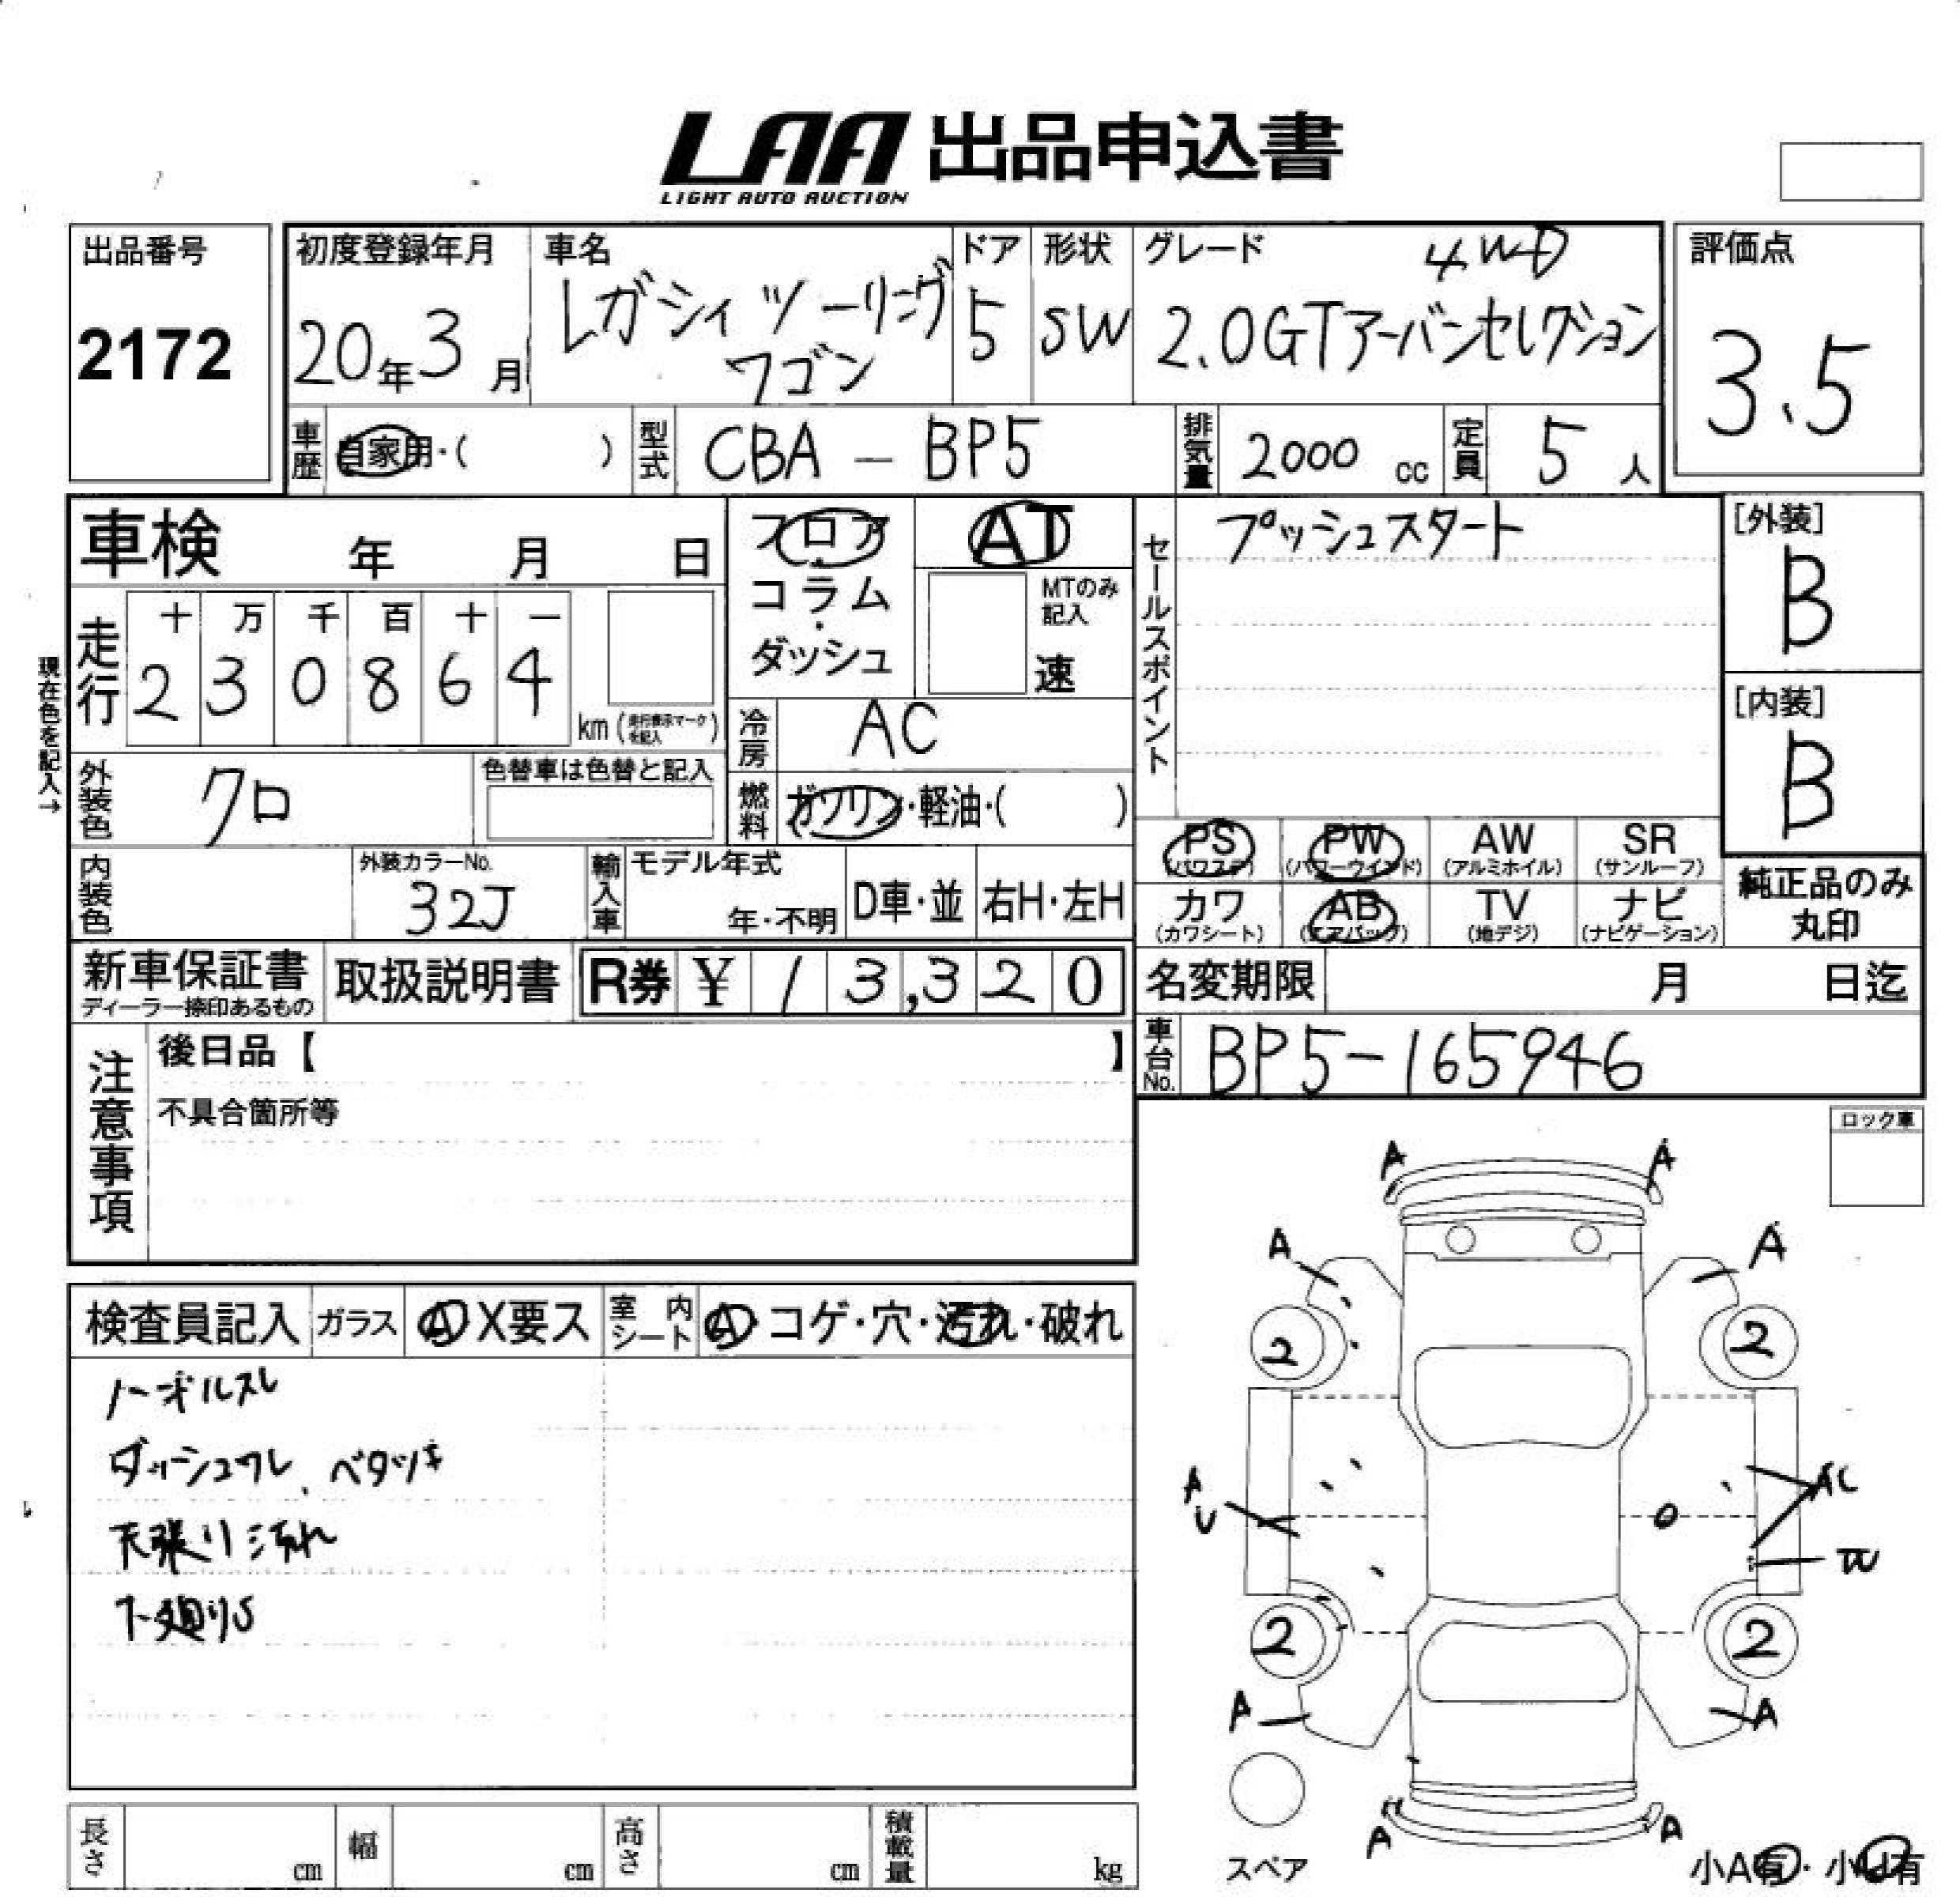 LAA 出品申込書
LIGHT AUTO AUCTION
出品番号
2172
初度登録年月
20年3月
車名
レガシィ ツーリング
ワゴン
ドア
5
形状
SW
グレード
4WD
2.0GTアーバンセレクション
評価点
3.5
車歴
自家用・( )
型式
CBA - BP5
排気量
2000 cc
定員
5 人
車検 年 月 日
走行
十 万 千 百 十 一
2 3 0 8 6 4
km (走行表示マークを記入)
現在色を記入→
フロア
・
コラム
・
ダッシュ
AT
MTのみ
記入
速
冷房
AC
燃料
ガソリン・軽油・( )
セールスポイント
プッシュスタート
[外装]
B
[内装]
B
外装色
クロ
色替車は色替と記入
内装色
外装カラーNo.
32J
輸入車
モデル年式
年・不明
D車・並
右H・左H
PS
(パワステ)
PW
(パワーウインド)
AW
(アルミホイル)
SR
(サンルーフ)
カワ
(カワシート)
AB
(エアバッグ)
TV
(地デジ)
ナビ
(ナビゲーション)
純正品のみ
丸印
新車保証書
ディーラー捺印あるもの
取扱説明書
R券 ¥ 13,320
名変期限 月 日迄
車台No.
BP5-165946
注意事項
後日品【 】
不具合箇所等
ロック車
検査員記入
ガラス
A X要ス
室内
シート
A・コゲ・穴・汚れ・破れ
ノーホルスレ
ダッシュワレ、ベタツキ
天張り汚れ
下廻りS
A A
A A
2 2
A
U
AC
2 2
A A
A A
スペア
小A有・小U有
長さ cm
幅 cm
高さ cm
積載量 kg